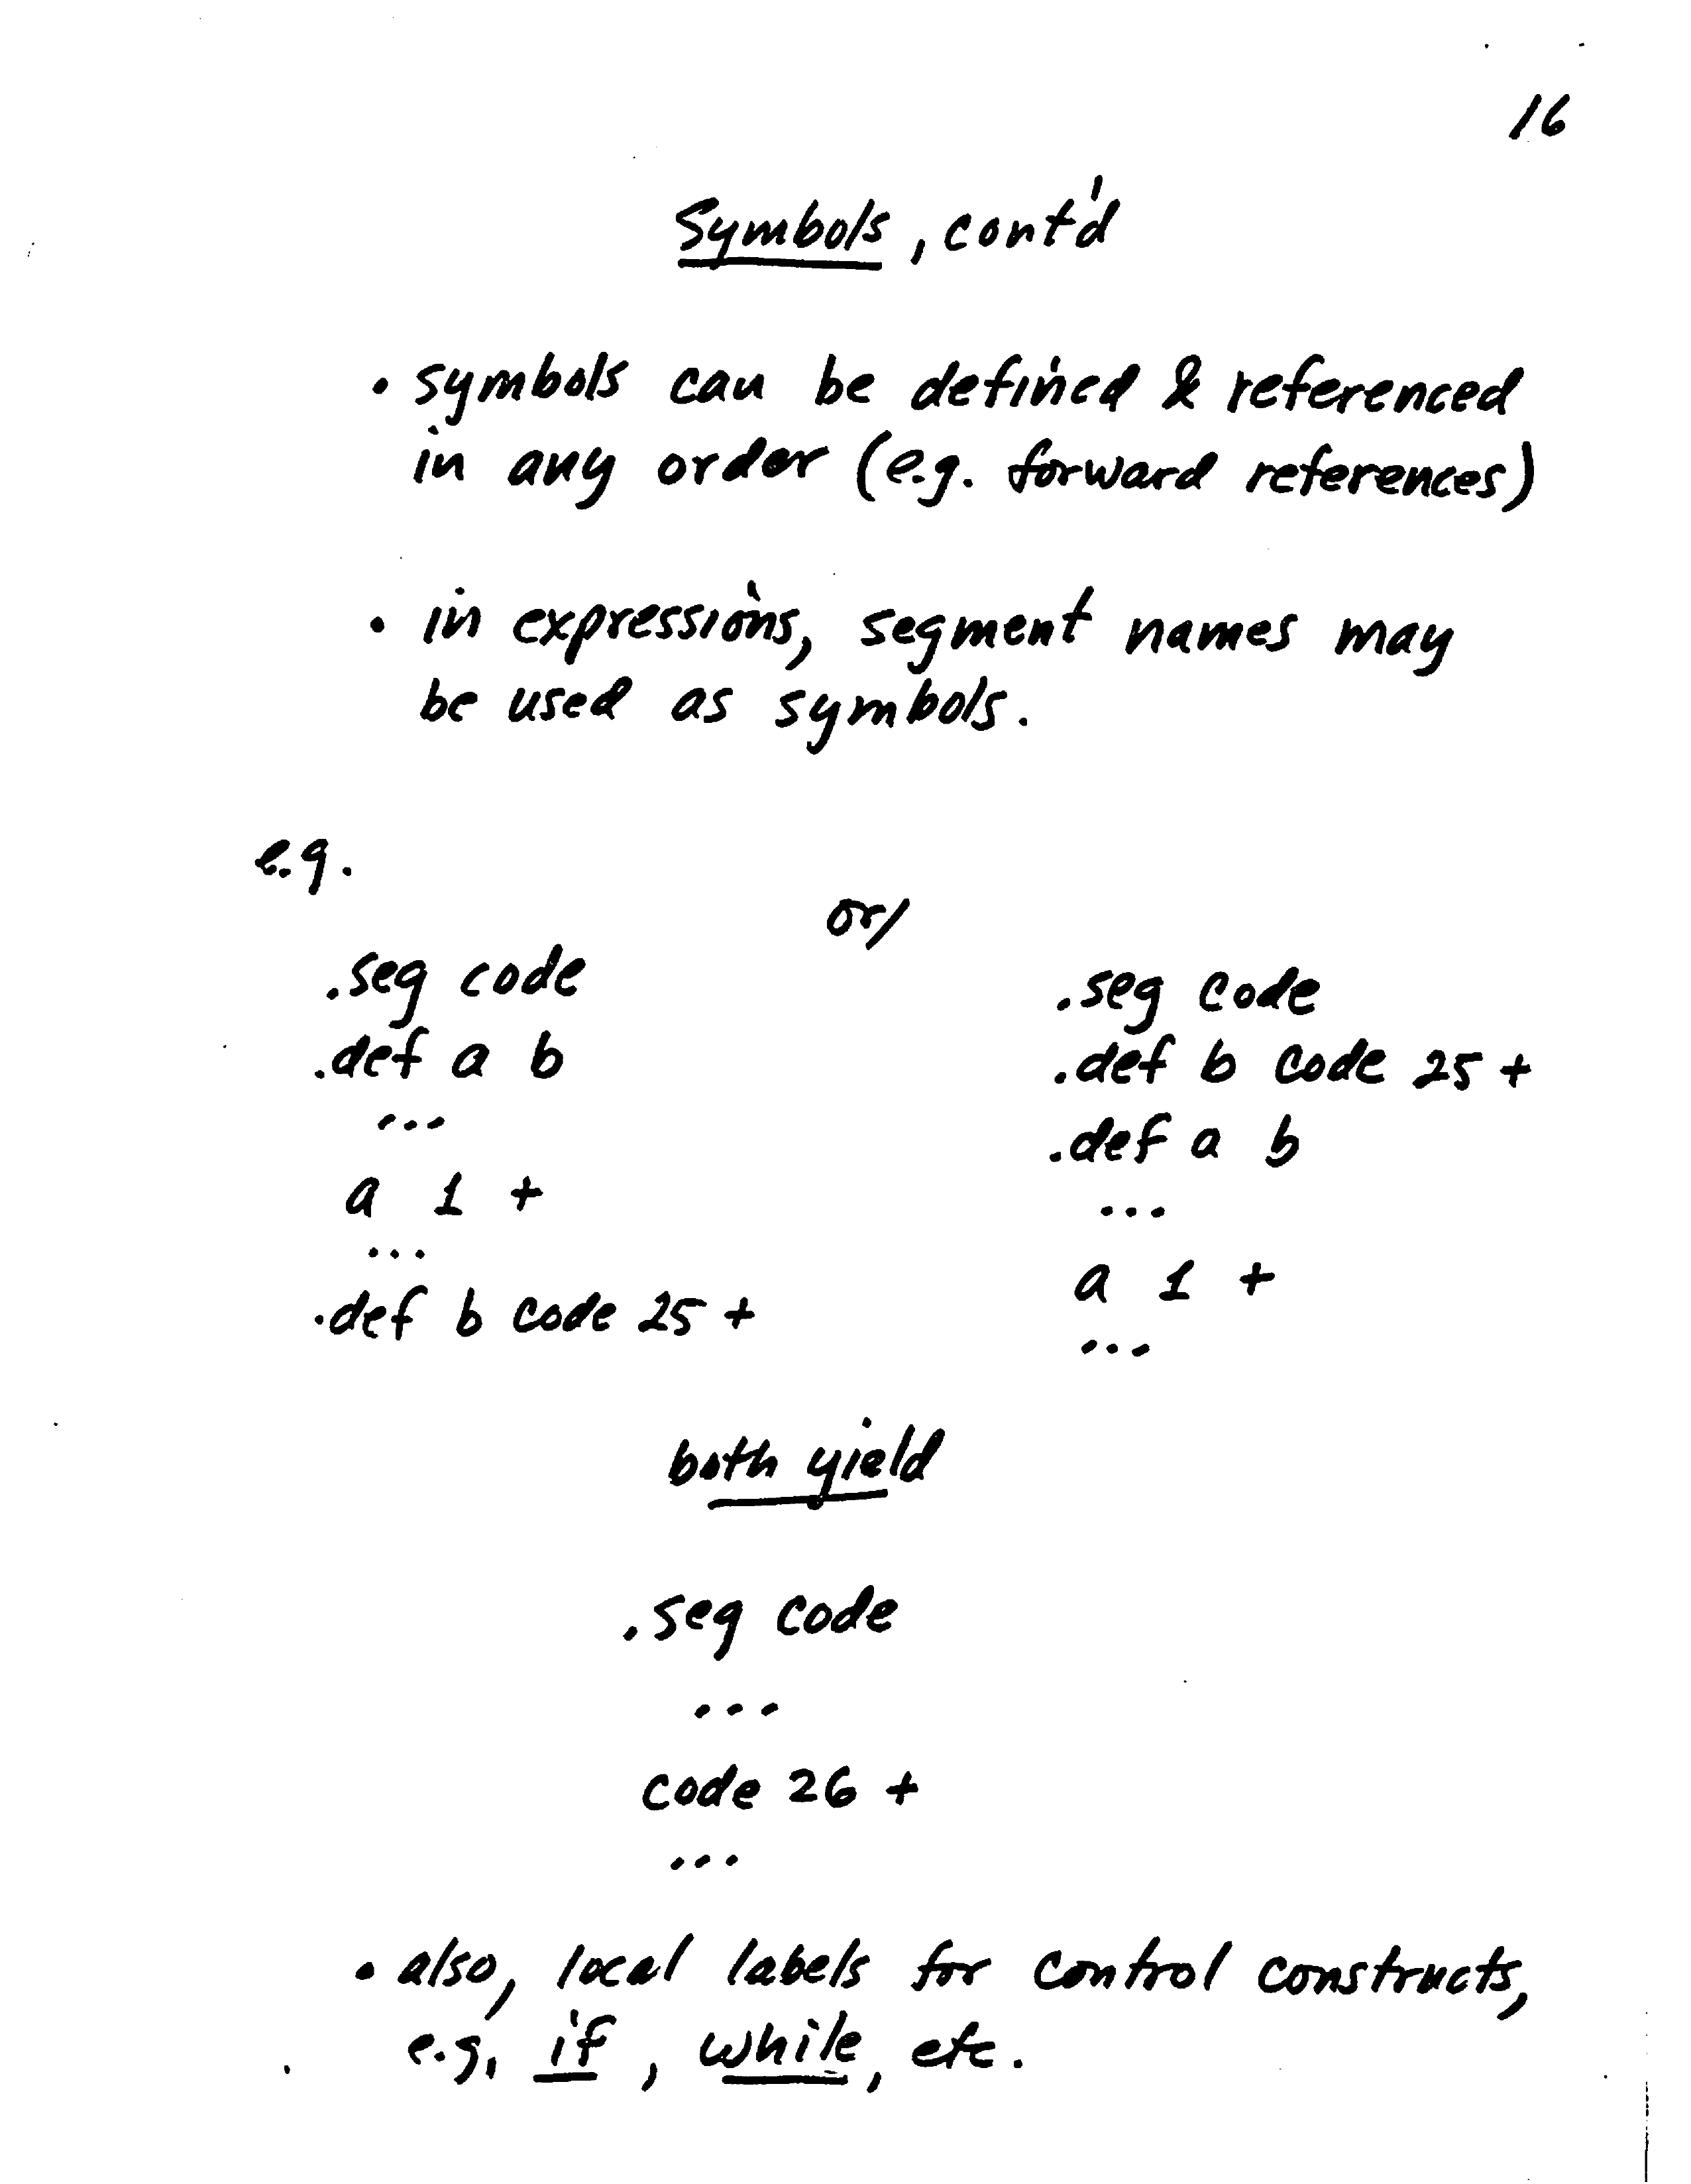 16
Symbols, cont'd
• symbols can be defined & referenced
in any order (e.g. forward references)
• in expressions, segment names may
be used as symbols.
e.g.
.seg code
.def a b
...
a 1 +
...
.def b code 25 +
or/
.seg code
.def b code 25 +
.def a b
...
a 1 +
...
both yield
.seg code
...
code 26 +
...
• also, local labels for control constructs,
e.g, if, while, etc.